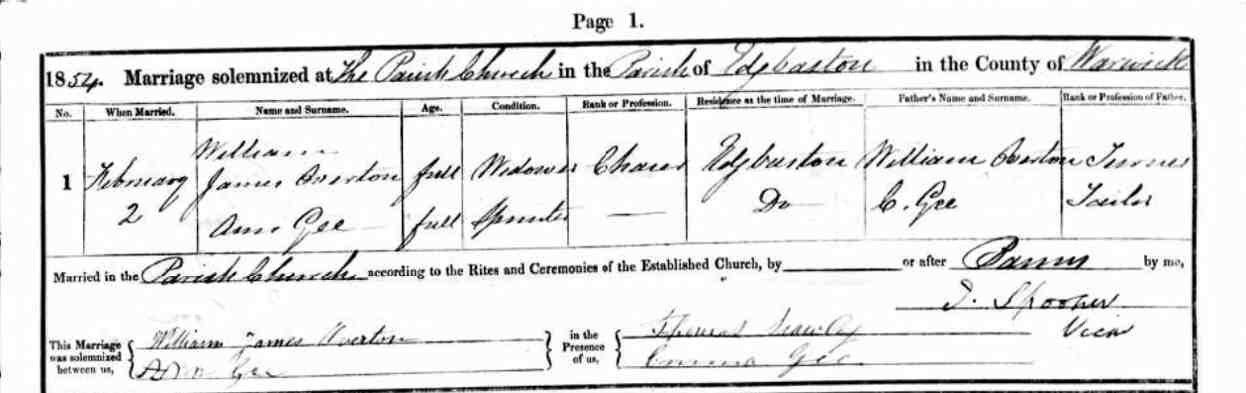 Page 1.
1854. Marriage solemnized at The Parish Church in the Parish of Edgbaston in the County of Warwick
No. When Married. Name and Surname. Age. Condition. Rank or Profession. Residence at the time of Marriage. Father's Name and Surname. Rank or Profession of Father.
William
1 February James Overton full Widower Chaser Edgbaston William Overton Turner
2 Ann Gee full Spinster — Do C. Gee Tailor
Married in the Parish Church according to the Rites and Ceremonies of the Established Church, by or after Banns by me,
J. Spooner
Vicar
This Marriage was solemnized between us, William James Overton in the Presence of us, Thomas
Ann Gee Emma Gee